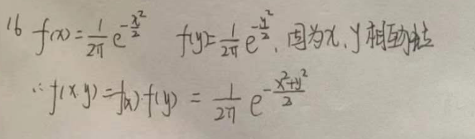 16 f(x)=\frac{1}{2π}e^{-\frac{x²}{2}} f(y)=\frac{1}{2π}e^{-\frac{y²}{2}}, 因为x、y相互独立
∴f(x y)=f(x)·f(y) = \frac{1}{2π} e^{-\frac{x²+y²}{2}}